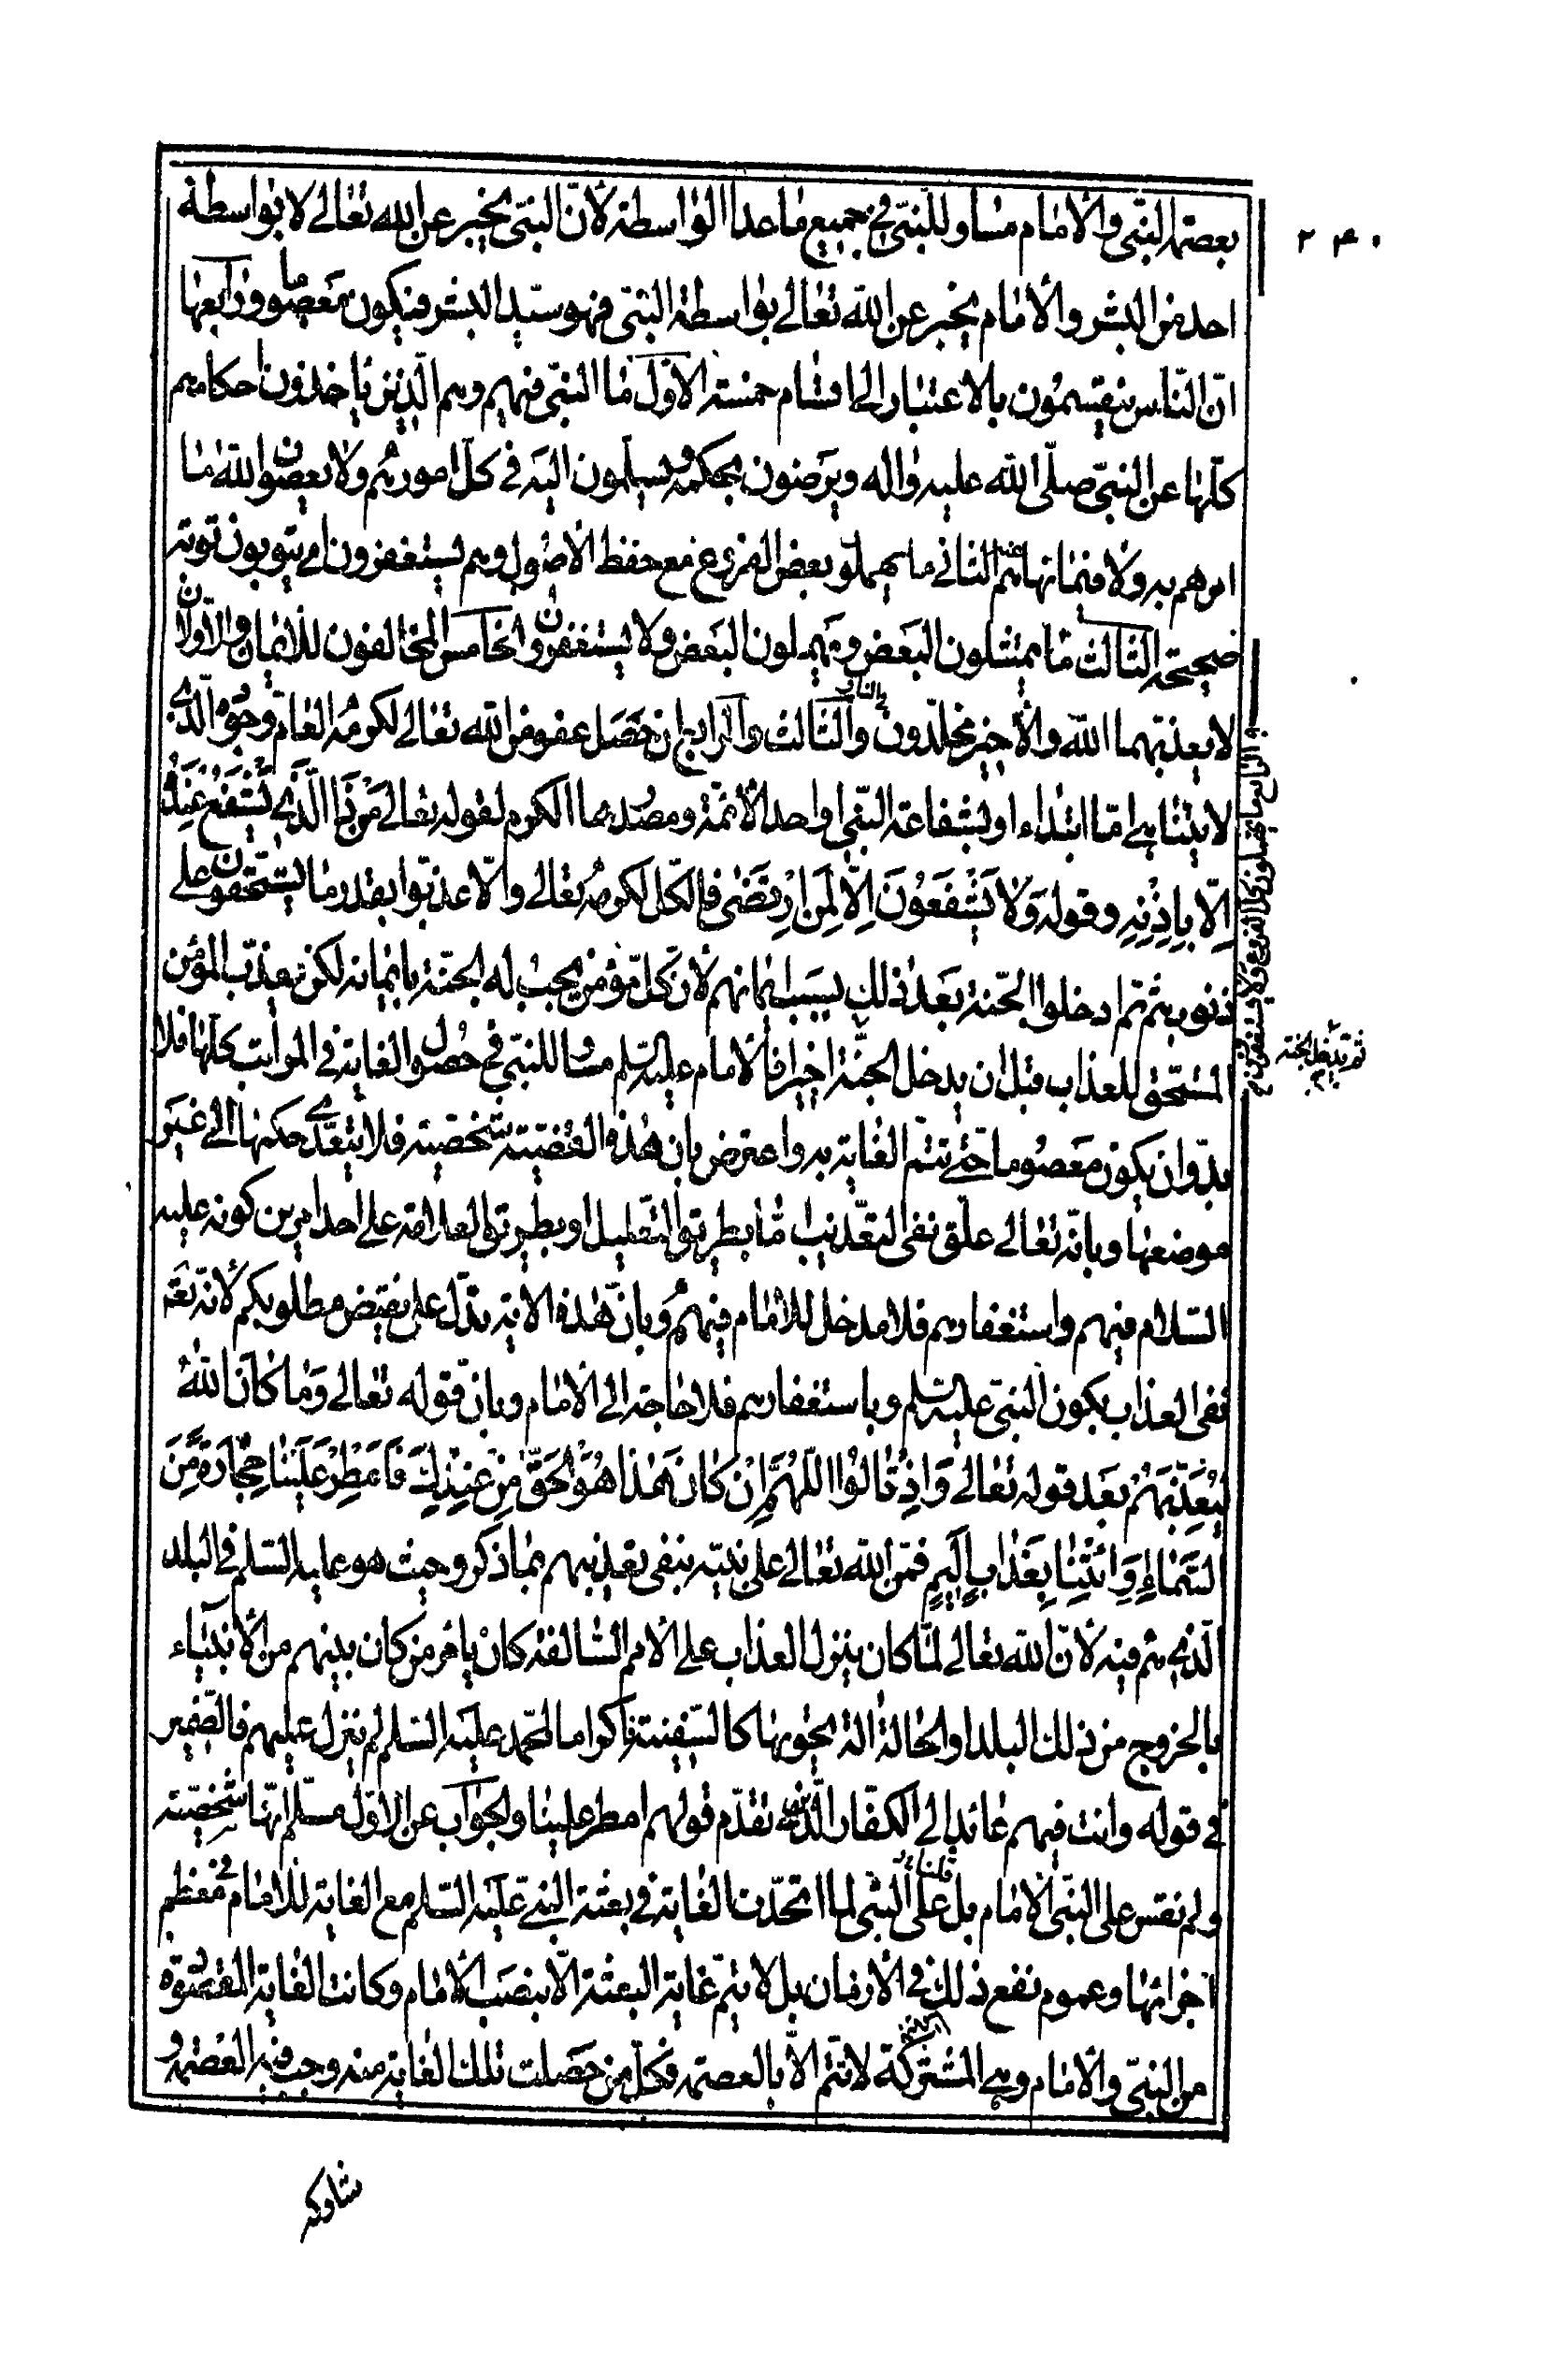 ٢٤٠
بعصمة النبی والامام مساو للنبی فی جمیع ما عدا الواسطة لأن النبی یخبر عن الله تعالی لا بواسطة
احد من البشر والامام یخبر عن الله تعالی بواسطة النبی فهو سید البشر فیکون معصوما ورابعها
ان الناس ینقسمون بالاعتبار الی اقسام خمسة الاول ما النبی فیهم وهم الذین یاخذون احکامهم
کلها عن النبی صلی الله علیه واله ویرضون بحکمه ویسلمون الیه فی کل امورهم ولا یعصون الله ما
امرهم به ولا فیما نهاهم عنه الثانی ما یهملو بعض الفروع مع حفظ الاصول وهم یستغفرون ای یتوبون توبة
صحیحة الثالث ما یمتثلون البعض ویهملون البعض ولا یستغفرون والخامس المخالفون للایمان والاولان
لا یعذبهما الله والأخیر مخلدون بالنار والثالث والرابع ان حصل عفو من الله تعالی لکرمه العام وجوده الذی
لا یتناهی اما ابتداء او بشفاعة النبی او احد الأئمة ومصدرهما الکرم لقوله تعالی مَنْ ذَا الَّذِی یَشْفَعُ عِنْدَهُ
اِلّا بِاِذْنِهِ وقوله وَلا یَشْفَعُونَ اِلّا لِمَنِ ارْتَضٰی فالکل لکرمه تعالی والّا عذبوا بقدر ما یستحقون علی
ذنوبهم ثم ادخلوا الجنة بعد ذلک بسبب ایمانهم لأن کل مؤمن یجب له الجنة بایمانه لکن یعذب المؤمن
المستحق للعذاب قبل ان یدخل الجنة اخیرا فالامام علیه السلم مساو للنبی فی حصول الغایة فی المراتب کلها فلا
بد وان یکون معصوما حتی تتم الغایة به واعترض بان هذه القضیة شخصیة فلا یتعدی حکمها الی غیر
موضعها وبانه تعالی علق نفی التعذیب اما بطریق التعلیل او بطریق العلاقة علی احد امرین کونه علیه
السلام فیهم واستغفارهم فلا مدخل للامام فیهم وبان هذه الایة تدل علی نقیض مطلوبکم لأنه تع
نفی العذاب بکون النبی علیه السلم وباستغفارهم فلا حاجة الی الامام وبان قوله تعالی وَمَا کَانَ اللهُ
لِیُعَذِّبَهُمْ بعد قوله تعالی وَاِذْ قَالُوا اللّهُمَّ اِنْ کَانَ هٰذَا هُوَ الْحَقَّ مِنْ عِنْدِکَ فَاَمْطِرْ عَلَیْنَا حِجَارَةً مِنَ
السَّمَاءِ اَوِ ائْتِنَا بِعَذَابٍ اَلِیمٍ فمن الله تعالی علی نبیه بنفی تعذیبهم بما ذکر وحیث هو علیه السلم فی البلد
الذی هم فیه لأن الله تعالی لما کان ینزل العذاب علی الامم السالفة کان یامر من کان بینهم من الأنبیاء
بالخروج من ذلک البلد او الحالة التی یحویها کالسفینة فاکراما لمحمد علیه السلم لم ینزل علیهم فالضمیر
فی قوله وانت فیهم عائد الی الکفار الذین تقدم قولهم امطر علینا والجواب عن الاول مسلم انها شخصیة
ولم نقس علی النبی الامام بل قلنا علی النبی لما اتحدت الغایة فی بعثة النبی علیه السلم مع الغایة للامام فی معظم
اجزائها وعموم نفع ذلک فی الازمان بل لا یتم غایة البعثة الا بنصب الامام وکانت الغایة المقصودة
من النبی والامام وهی المشترکة لا تتم الا بالعصمة فکل من حصلت تلک الغایة منه وجب فیه العصمة و
الرابع ما یهملون کل الفروع ولا یستغفرون
ثم یدخل الجنة